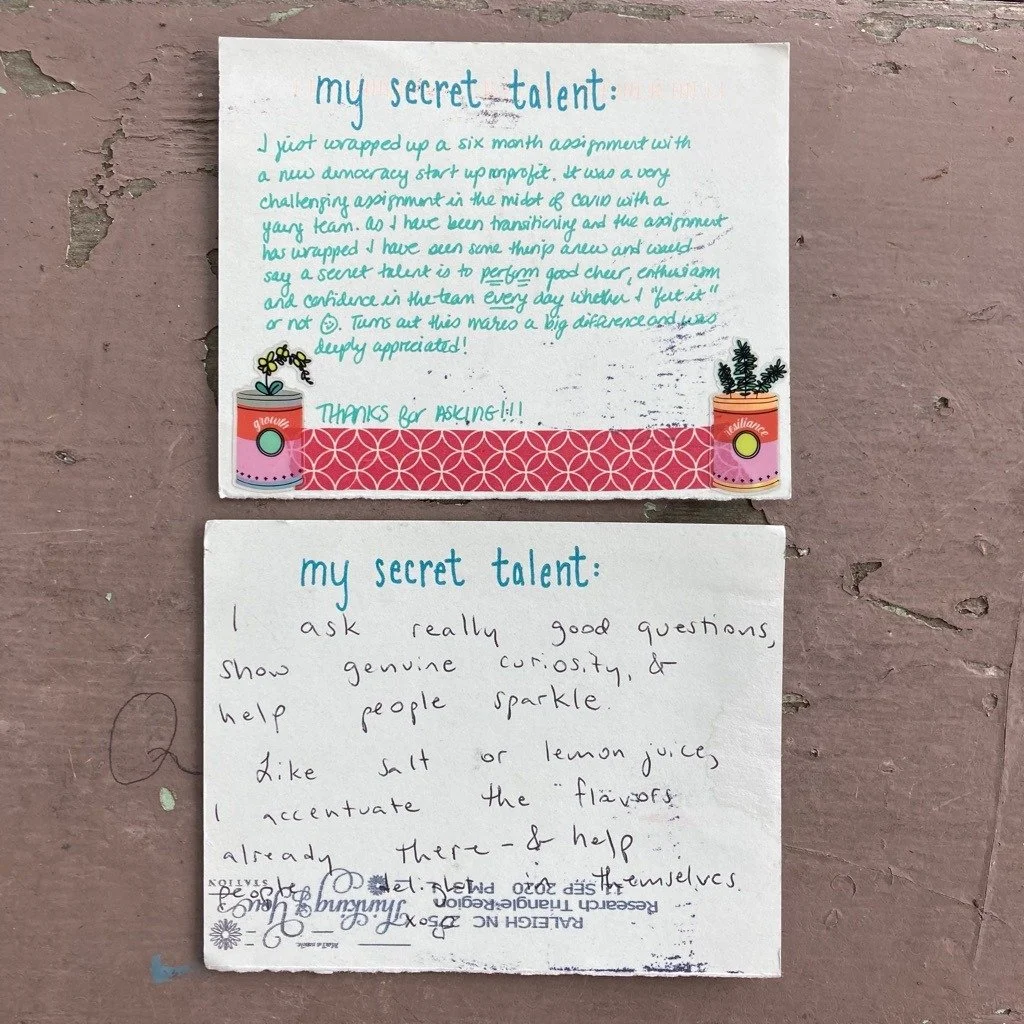 my secret talent:
I just wrapped up a six month assignment with
a new democracy start up nonprofit. It was a very
challenging assignment in the midst of COVID with a
young team. As I have been transitioning and the assignment
has wrapped I have seen some things anew and would
say a secret talent is to perform good cheer, enthusiasm
and confidence in the team every day whether I "felt it"
or not ☺. Turns out this makes a big difference and was
deeply appreciated!
THANKS for ASKING!!!
growth
resiliance
my secret talent:
I ask really good questions,
show genuine curiosity, &
help people sparkle.
Like salt or lemon juice,
I accentuate the "flavors
already there - & help
people delight in themselves.
RALEIGH NC 275
Research Triangle Region
SEP 2020 PM 3
Thinking of You
STATION